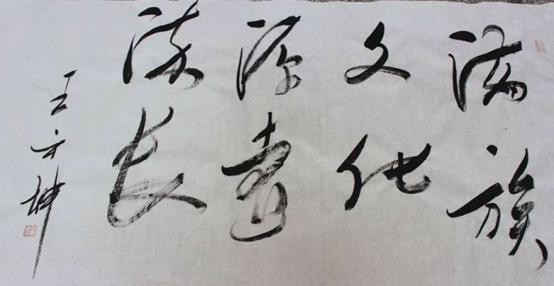 满族
文化
源远
流长
王云坤